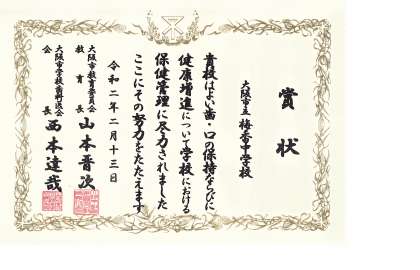 賞状
大阪市立 梅香中学校
貴校はよい歯・口の保持ならびに
健康増進について学校における
保健管理に尽力されました
ここにその努力をたたえます
令和二年二月十三日
大阪市教育委員会
教育長 山本晋次
大阪市学校歯科医会
会長 西本達哉